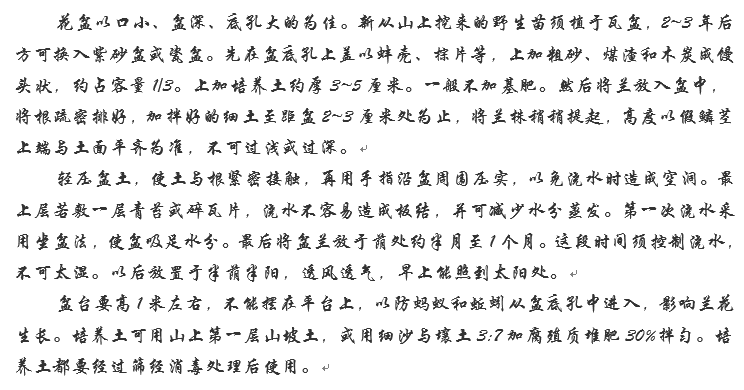 花盆以口小、盆深、底孔大的为佳。新从山上挖来的野生苗须植于瓦盆，2~3年后
方可换入紫砂盆或瓷盆。先在盆底孔上盖以蚌壳、棕片等，上加粗砂、煤渣和木炭成馒
头状，约占容量1/3。上加培养土约厚3~5厘米。一般不加基肥。然后将兰放入盆中，
将根疏密排好，加拌好的细土至距盆2~3厘米处为止，将兰株稍稍提起，高度以假鳞茎
上端与土面平齐为准，不可过浅或过深。
轻压盆土，使土与根紧密接触，再用手指沿盆周围压实，以免浇水时造成空洞。最
上层若敷一层青苔或碎瓦片，浇水不容易造成板结，并可减少水分蒸发。第一次浇水采
用坐盆法，使盆吸足水分。最后将盆兰放于荫处约半月至1个月。这段时间须控制浇水，
不可太湿。以后放置于半荫半阳，透风透气，早上能照到太阳处。
盆台要高1米左右，不能摆在平台上，以防蚂蚁和蚯蚓从盆底孔中进入，影响兰花
生长。培养土可用山上第一层山坡土，或用细沙与壤土3:7加腐殖质堆肥30%拌匀。培
养土都要经过筛经消毒处理后使用。